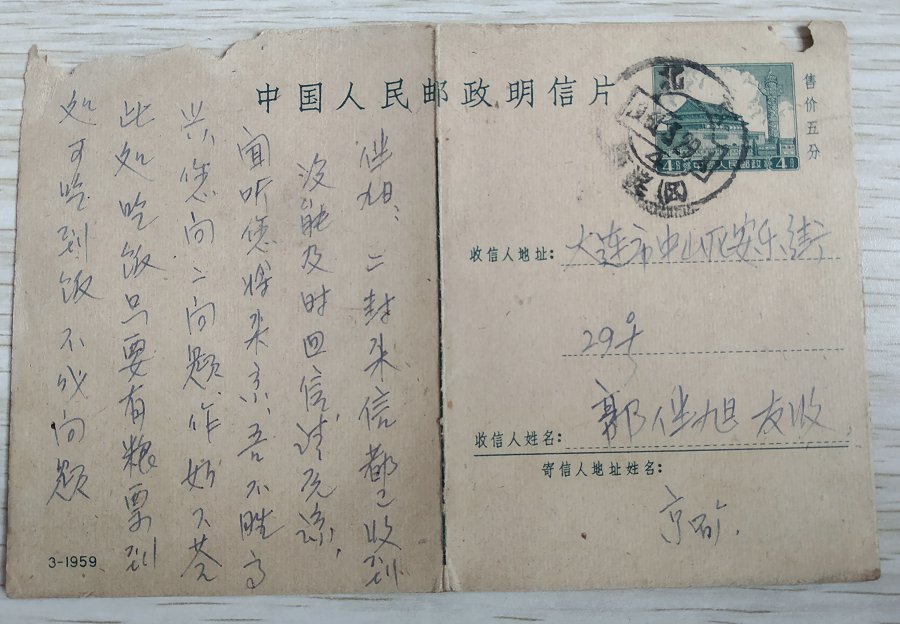 中国人民邮政明信片
售价五分
中国人民邮政
北京
收信人地址：大连市中山区安乐街
29号
收信人姓名：郭继旭友收
寄信人地址姓名：
二封来信都已收到
没能及时回信，请见谅，
闻听您将来京，吾不胜高
兴，您问二问题作如下答
此处吃饭只要有粮票到
处可吃到饭不成问题
3-1959